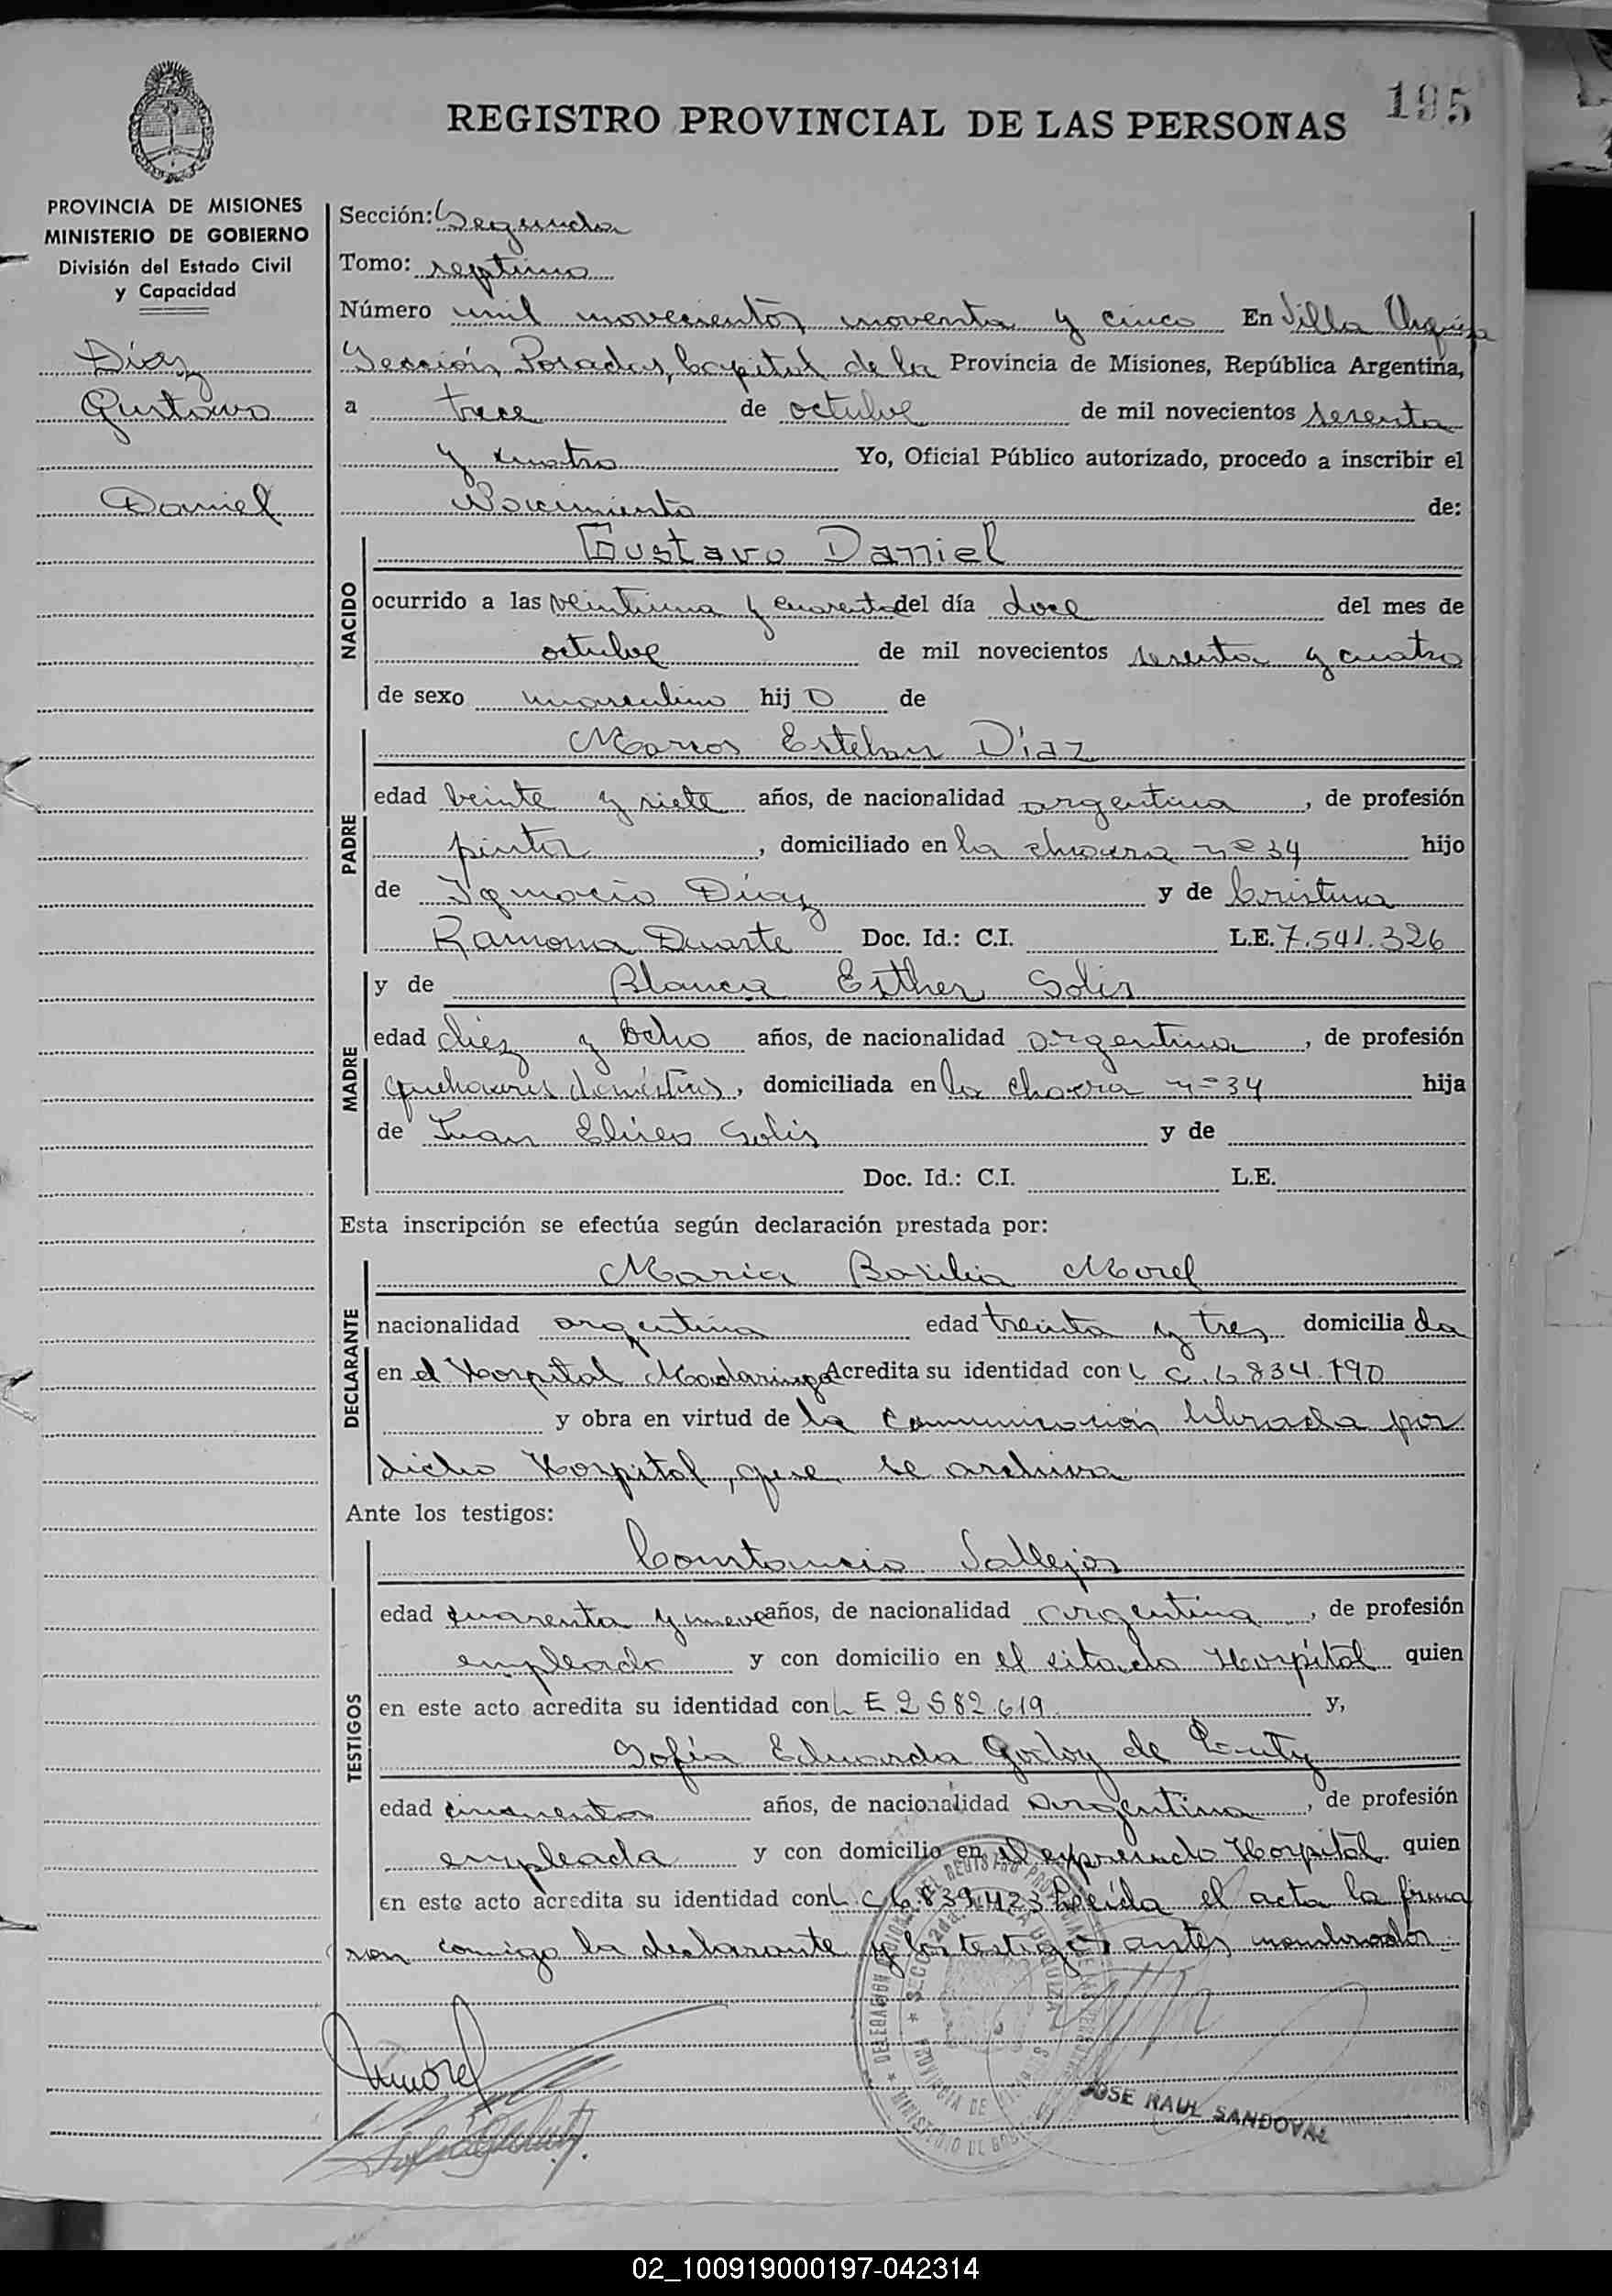 195
REGISTRO PROVINCIAL DE LAS PERSONAS
PROVINCIA DE MISIONES
MINISTERIO DE GOBIERNO
División del Estado Civil
y Capacidad
Díaz
Gustavo
Daniel
Sección: Segunda
Tomo: septimo
Número mil novecientos noventa y cinco En Villa Urquiza
Sección Posadas, Capital de la Provincia de Misiones, República Argentina,
a trece de octubre de mil novecientos sesenta
y cuatro Yo, Oficial Público autorizado, procedo a inscribir el
Nacimiento de:
NACIDO
Gustavo Daniel
ocurrido a las veintiuna y cuarenta del día doce del mes de
octubre de mil novecientos sesenta y cuatro
de sexo masculino hijo de
PADRE
Marcos Esteban Díaz
edad veinte y siete años, de nacionalidad argentina, de profesión
pintor, domiciliado en la chacra nº 34 hijo
de Ignacio Díaz y de Cristina
Ramona Duarte Doc. Id.: C.I. L.E. 7.541.326
MADRE
y de Blanca Esther Solis
edad diez y ocho años, de nacionalidad argentina, de profesión
quehaceres domésticos, domiciliada en la chacra nº 34 hija
de Juan Solis y de
Doc. Id.: C.I. L.E.
Esta inscripción se efectúa según declaración prestada por:
DECLARANTE
Maria Basilia Morel
nacionalidad argentina edad treinta y tres domiciliada
en el Hospital Madariaga Acredita su identidad con L C. 6 834.190
y obra en virtud de la comunicación librada por
dicho Hospital, que se archiva
Ante los testigos:
TESTIGOS
Constancio Vallejos
edad cuarenta y nueve años, de nacionalidad argentina, de profesión
empleado y con domicilio en el citado Hospital quien
en este acto acredita su identidad con L E 2 582.619 y,
Sofía Eduarda Godoy de
edad cincuenta años, de nacionalidad argentina, de profesión
empleada y con domicilio en el expresado Hospital quien
en este acto acredita su identidad con L C 6.839.423 Leída el acta la firma
ron conmigo la declarante y los testigos antes nombrados
Mmorel
JOSE RAUL SANDOVAL
02_100919000197-042314